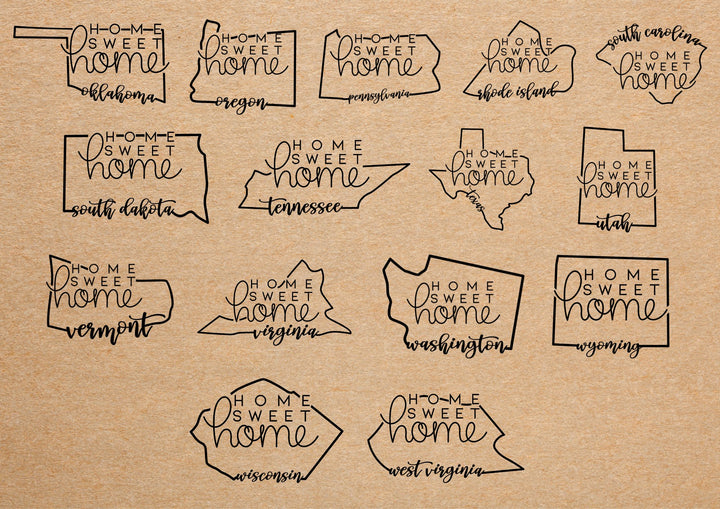 HOME
SWEET
home
oklahoma
HOME
SWEET
home
oregon
HOME
SWEET
home
pennsylvania
HOME
SWEET
home
rhode island
south carolina
HOME
SWEET
home
HOME
SWEET
home
south dakota
HOME
SWEET
home
tennessee
HOME
SWEET
home
texas
HOME
SWEET
home
utah
HOME
SWEET
home
vermont
HOME
SWEET
home
virginia
HOME
SWEET
home
washington
HOME
SWEET
home
wyoming
HOME
SWEET
home
wisconsin
HOME
SWEET
home
west virginia